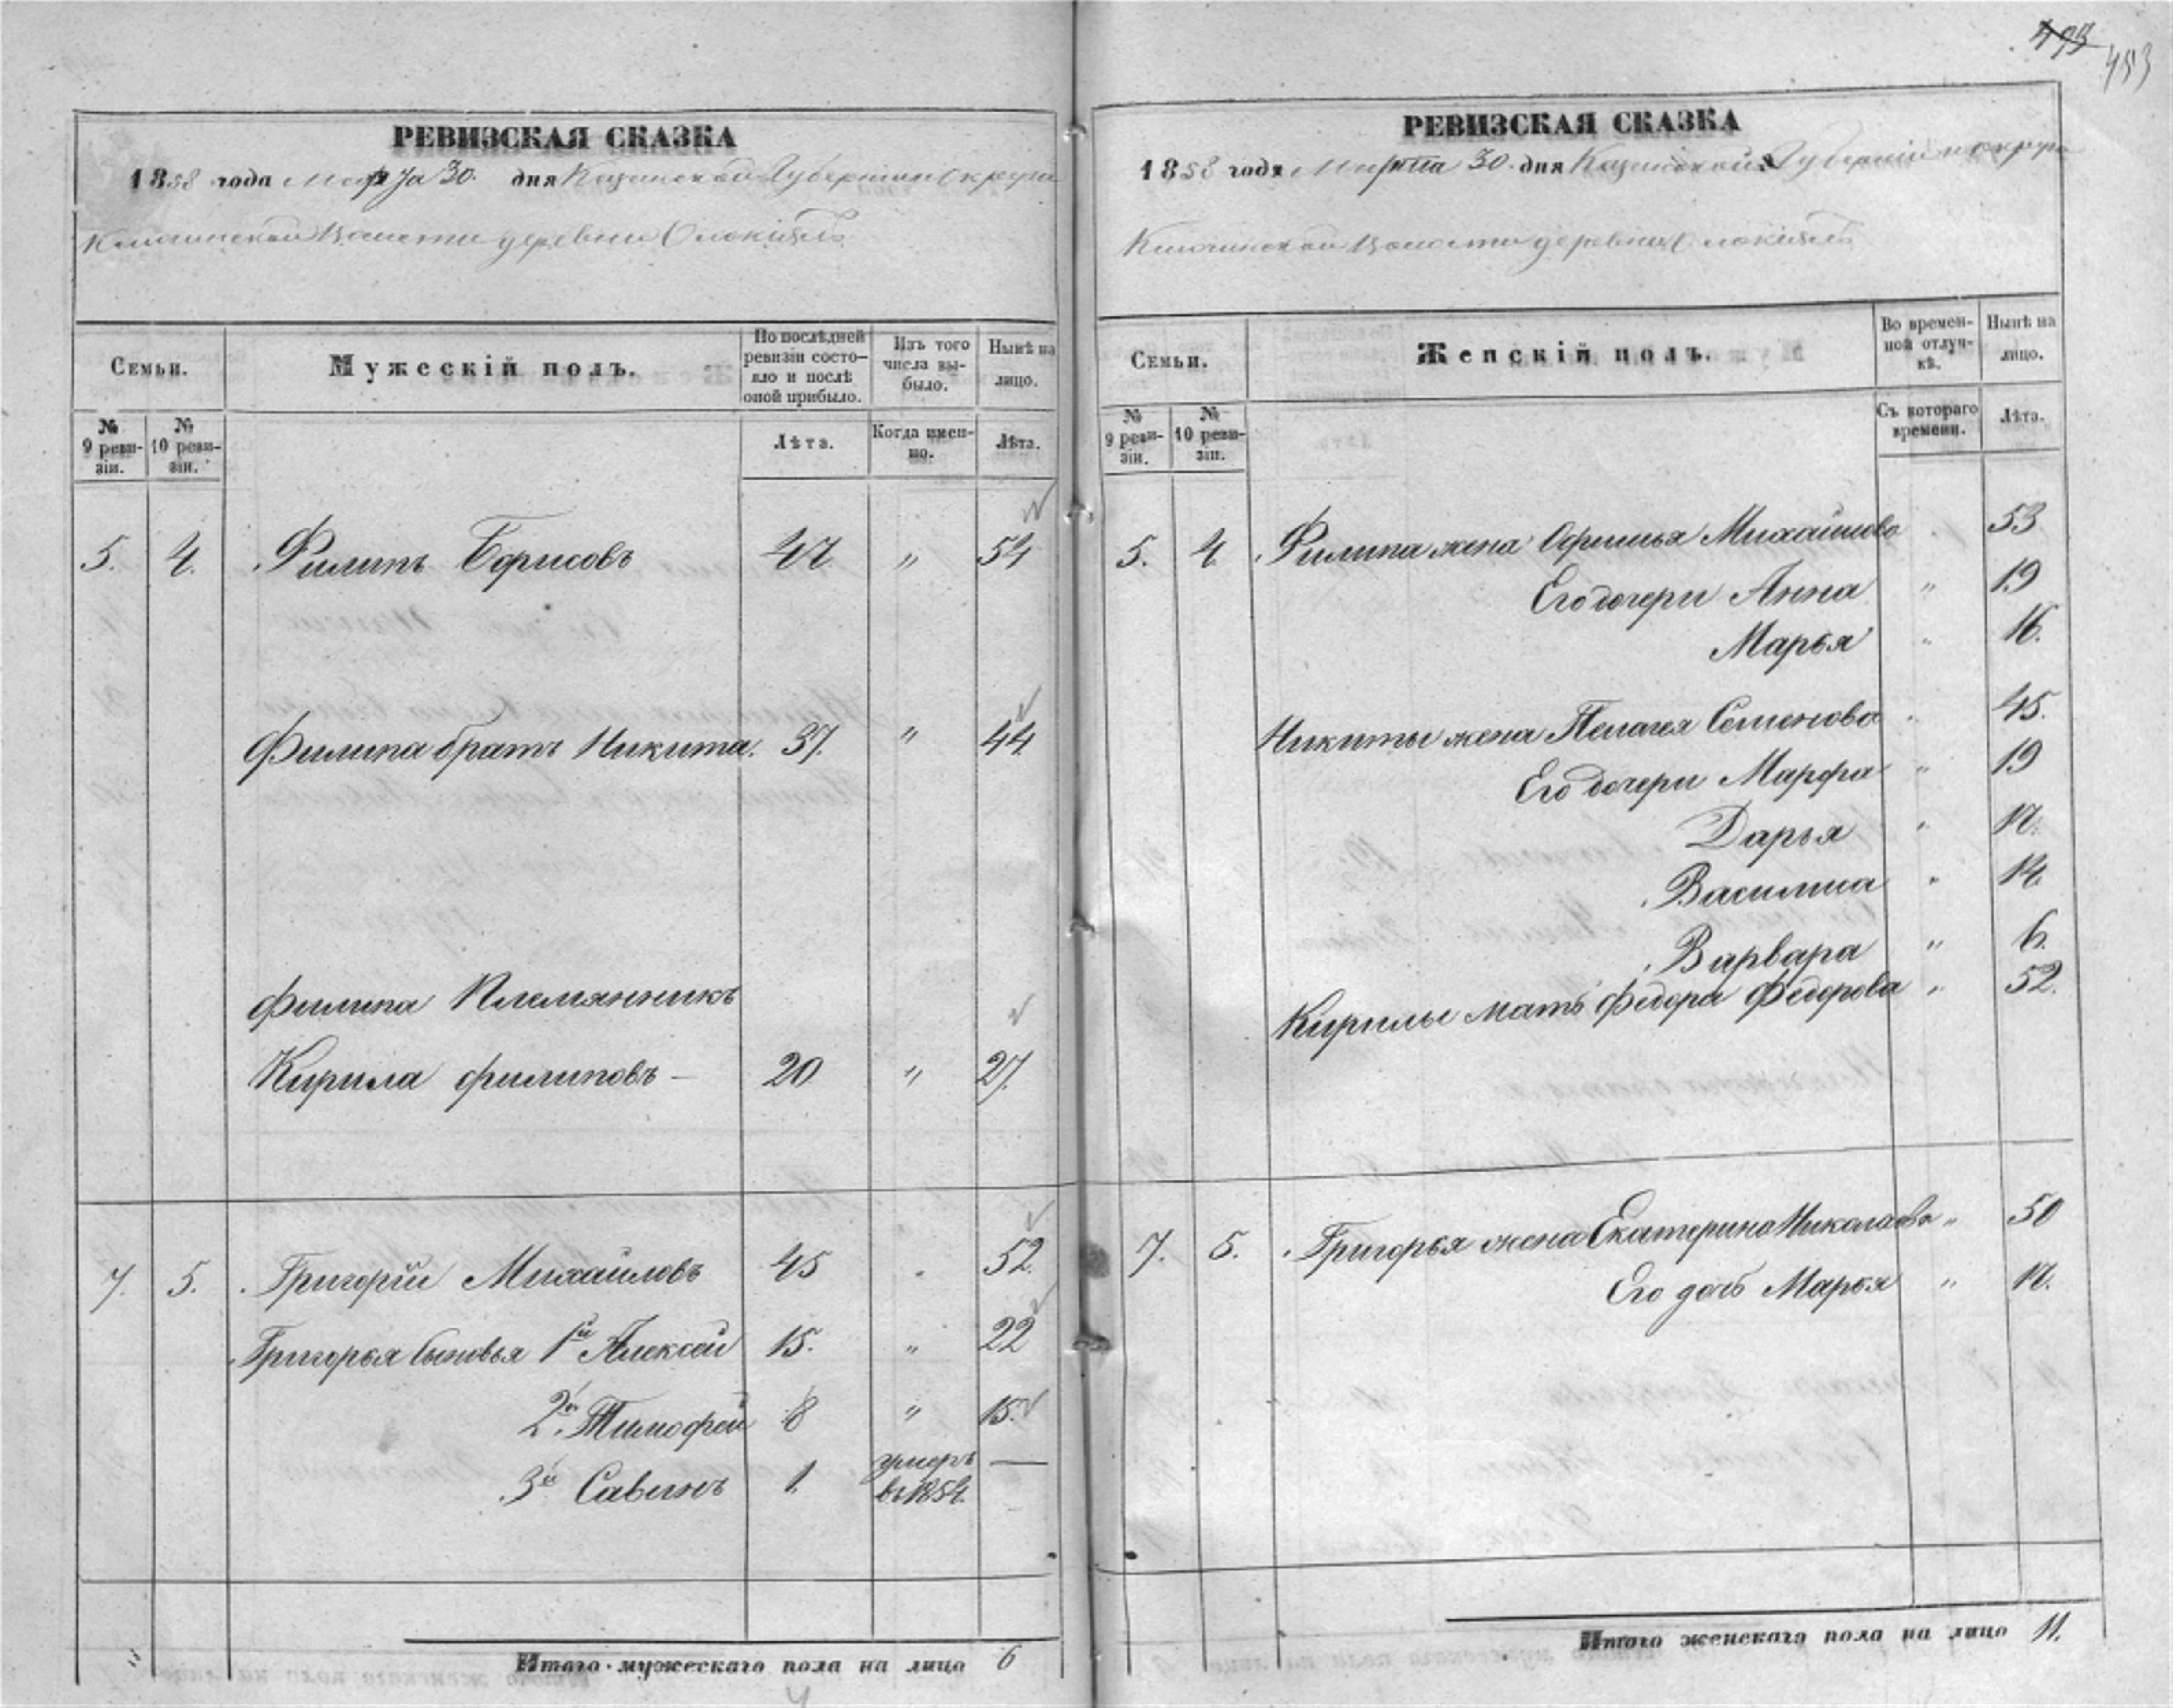 493
453
РЕВИЗСКАЯ СКАЗКА
1858 года Марта 30. дня Казанской Губернии Округи
волости деревни
Семьи.
Мужескій полъ.
По послѣдней ревизіи состояло и послѣ оной прибыло.
Изъ того числа выбыло.
Нынѣ на лицо.
№ 9 ревизіи.
№ 10 ревизіи.
Лѣта.
Когда именно.
Лѣта.
5. 4. Филипъ Борисовъ 47 " 54
Филипа братъ Никита. 37. " 44
Филипа Племянникъ
Кирила Филиповъ — 20 " 27.
7. 5. Григорій Михайловъ 45 " 52.
Григорья сыновья 1й Алексей 15. " 22
2й Тимофей 8 " 15.
3й Савинъ 1. умеръ въ 1854. —
Итого мужескаго пола на лицо 6
РЕВИЗСКАЯ СКАЗКА
1858 года Марта 30. дня Казанской Губерніи и округи
волости деревни
Семьи.
Женскій полъ.
Во временной отлучкѣ.
Нынѣ на лицо.
№ 9 ревизіи.
№ 10 ревизіи.
Съ котораго времени.
Лѣта.
5. 4. Филипа жена Офимья Михайлова " 53
Его дочери Анна " 19
Марья " 16.
Никиты жена Пелагея Семенова " 45.
Его дочери Марфа " 19
Дарья " 17.
Василиса " 14.
Варвара " 6.
Кирилы мать Федора Федорова " 52.
7. 5. Григорья жена Екатерина Николаева " 50
Его дочь Марья " 17.
Итого женскаго пола на лицо 11.